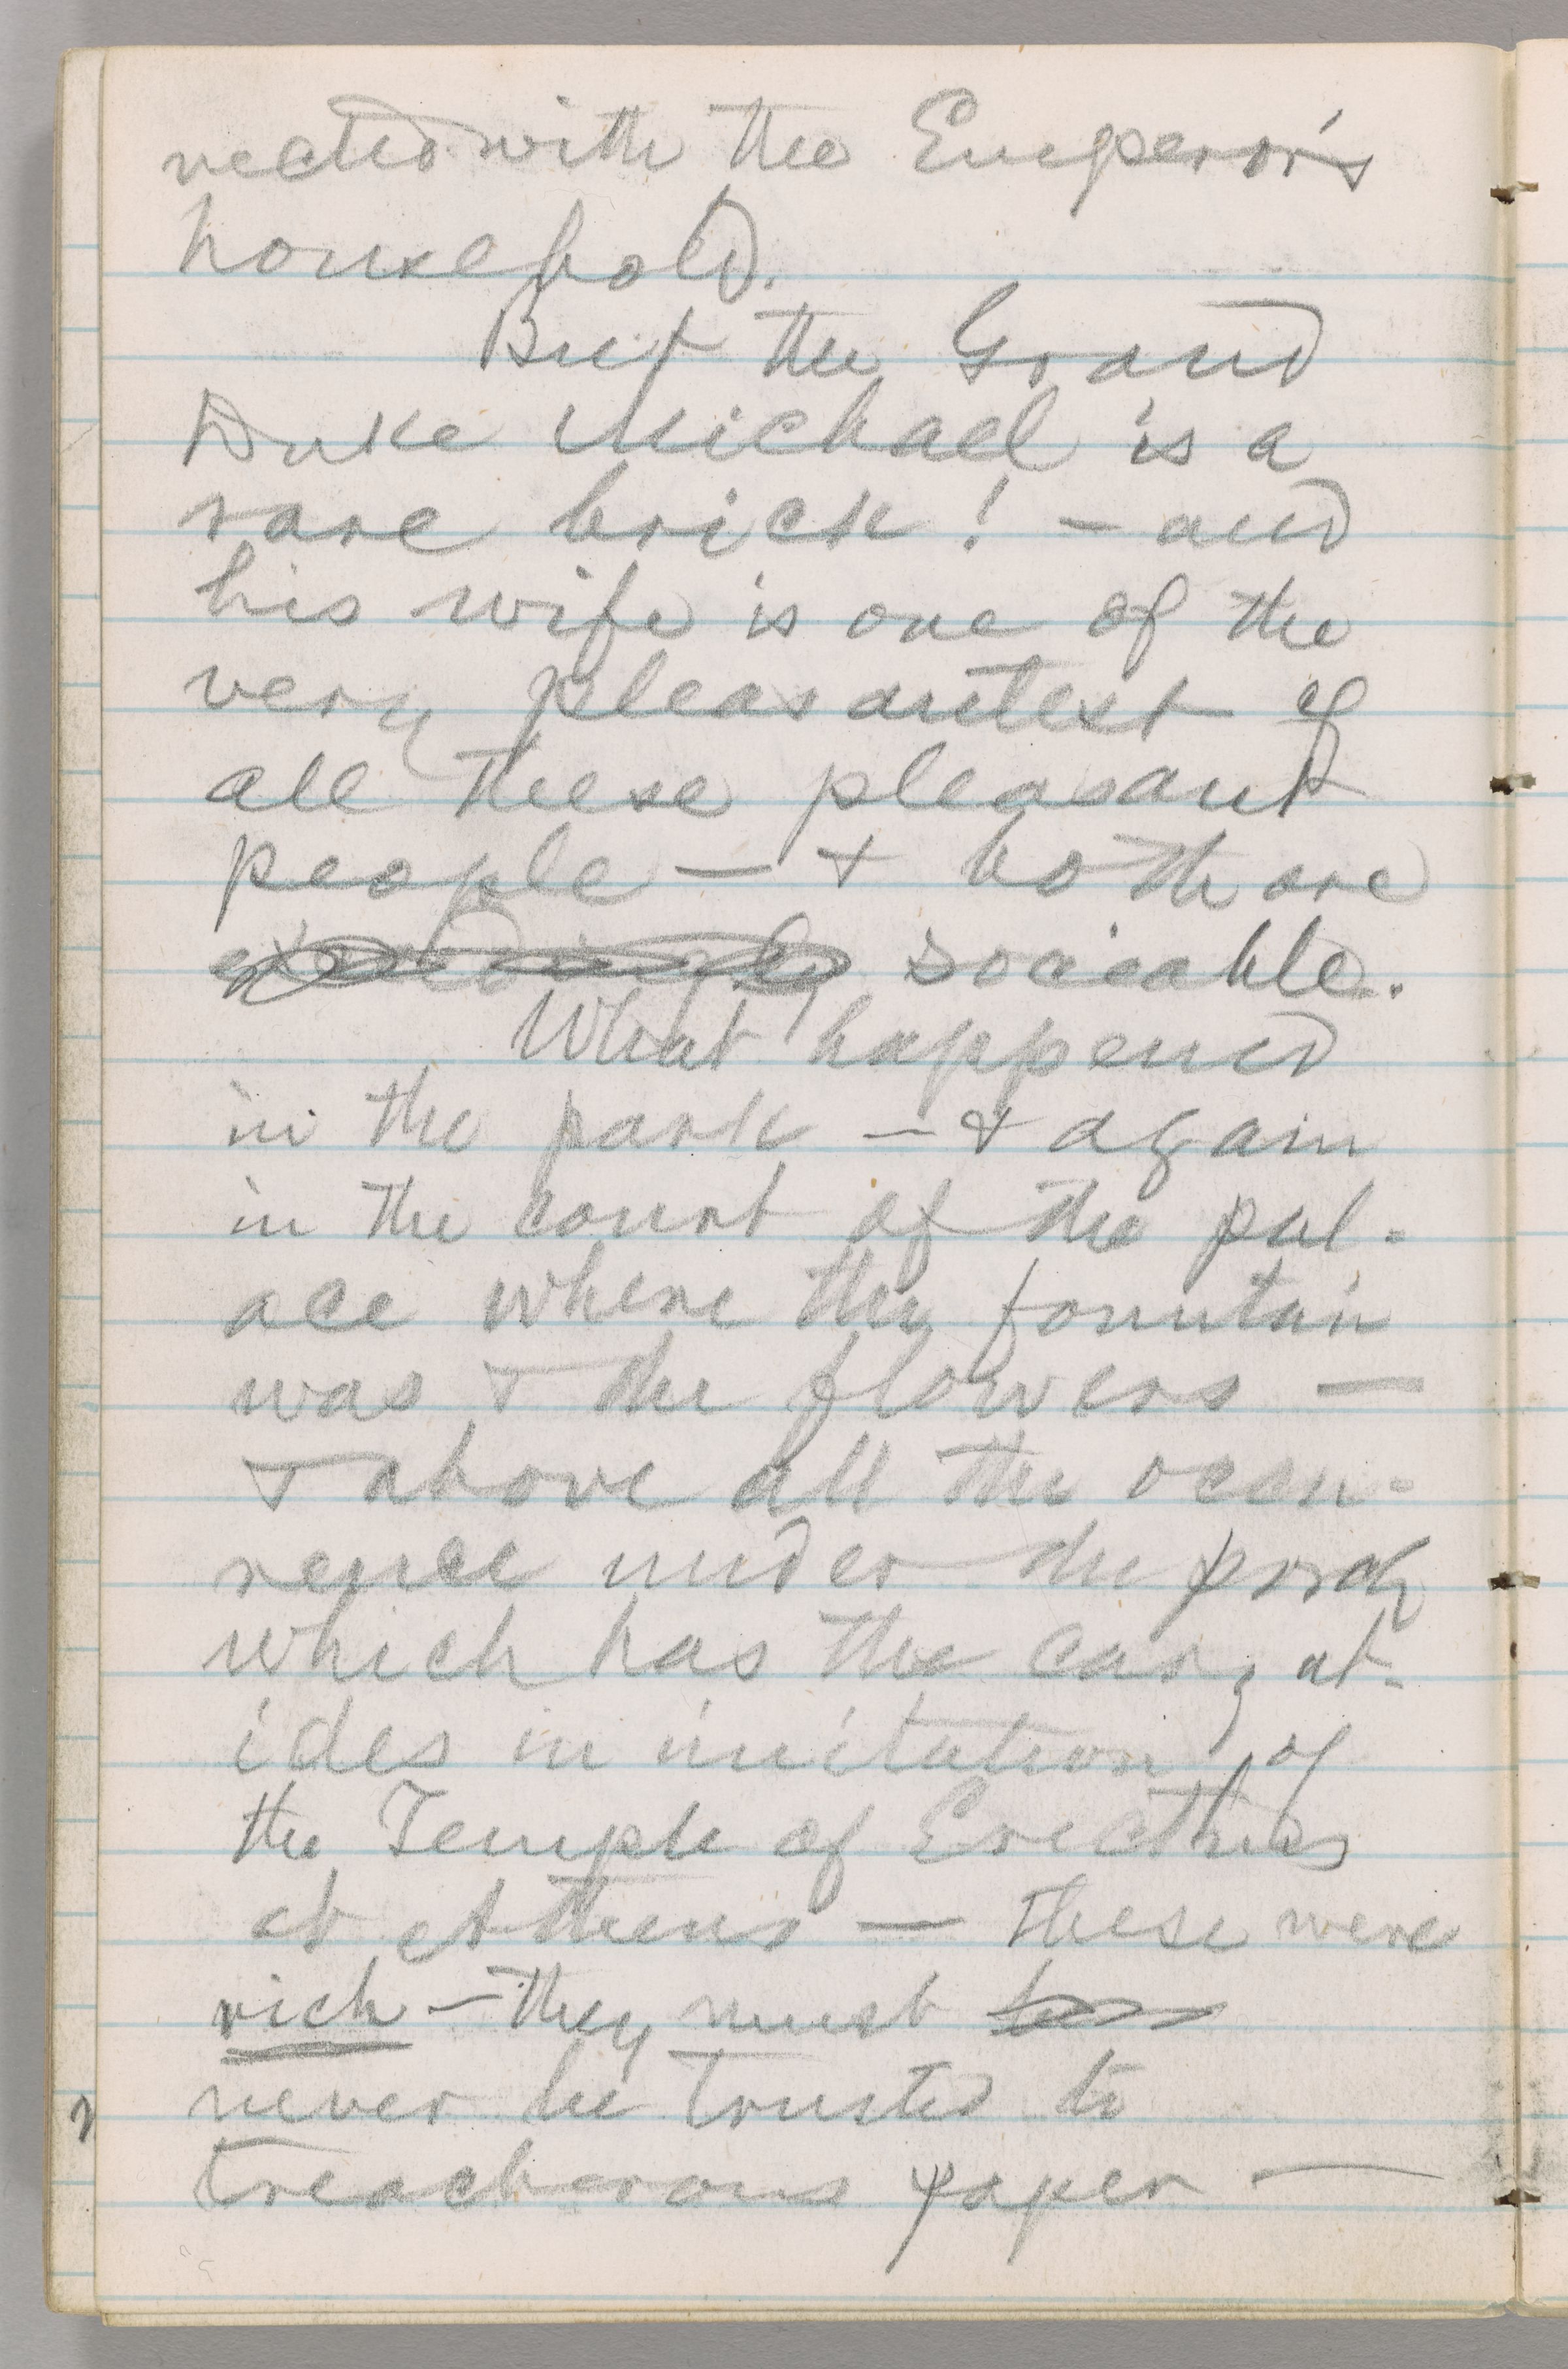 nected with the Emperor's
household.
But the Grand
Duke Michael is a
rare brick! — and
his wife is one of the
very pleasantest of
all these pleasant
people — & both are
exceedingly sociable.
What happened
in the park — & again
in the court of the pal-
ace where the fountain
was & the flowers —
& above all the occur-
rence under the porch
which has the caryat-
ides in imitation of
the Temple of Erectheus
at Athens — these were
rich — they must
never be trusted to
treacherous paper —